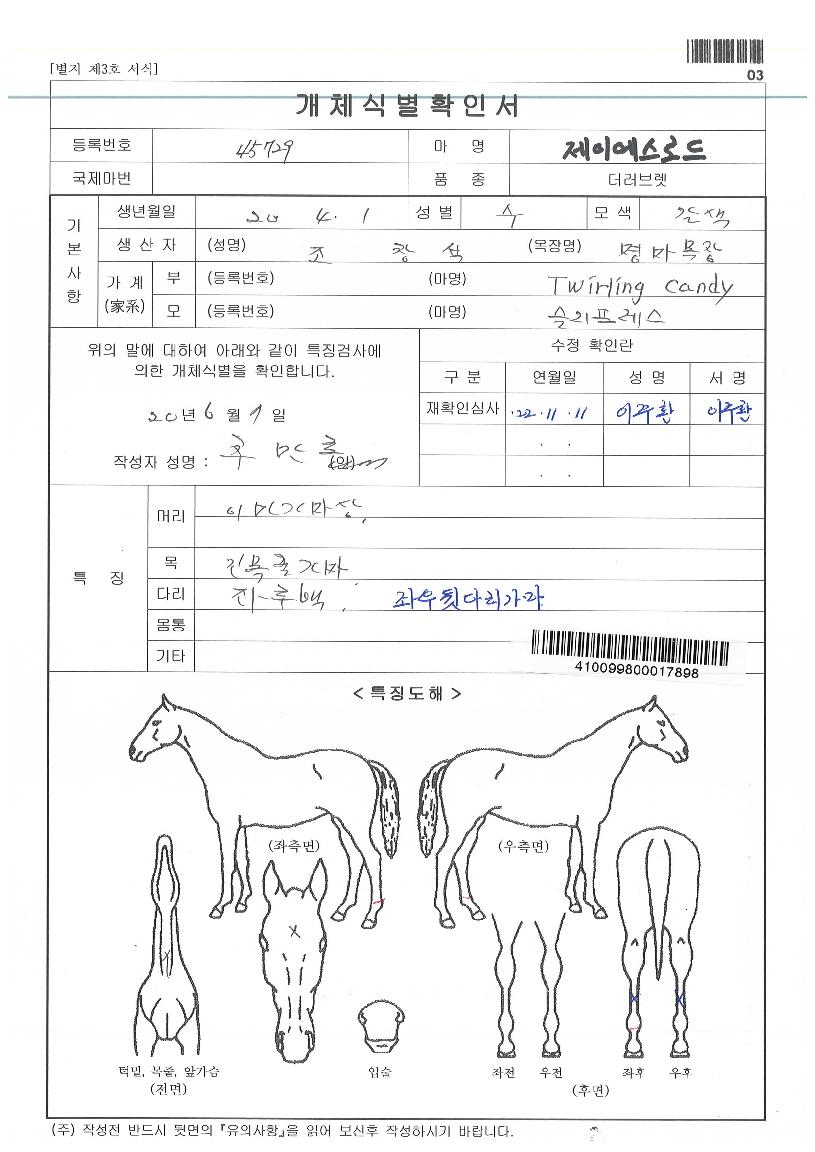 [별지 제3호 서식]
03
개체식별확인서
등록번호 45729 마 명 제이에스로드
국제마번 품 종 더러브렛
기본사항
생년월일 20 4. 1 성 별 수 모 색 갈색
생 산 자 (성명) 조 창 석 (목장명) 명마목장
가 계 (家系) 부 (등록번호) (마명) Twirling Candy
모 (등록번호) (마명) 슬리프레스
위의 말에 대하여 아래와 같이 특징검사에
의한 개체식별을 확인합니다.
20년 6월 9일
작성자 성명 : (인)
수정 확인란
구 분 연월일 성 명 서 명
재확인심사 .22.11.11 이주환 이주환
. .
. .
특 징
머리
목
다리 좌우뒷다리가마
몸통
기타
410099800017898
< 특징도해 >
(좌측면) (우측면)
턱밑, 목줄, 앞가슴
(전면)
입술
좌전 우전 좌후 우후
(후면)
(주) 작성전 반드시 뒷면의 『유의사항』을 읽어 보신후 작성하시기 바랍니다.